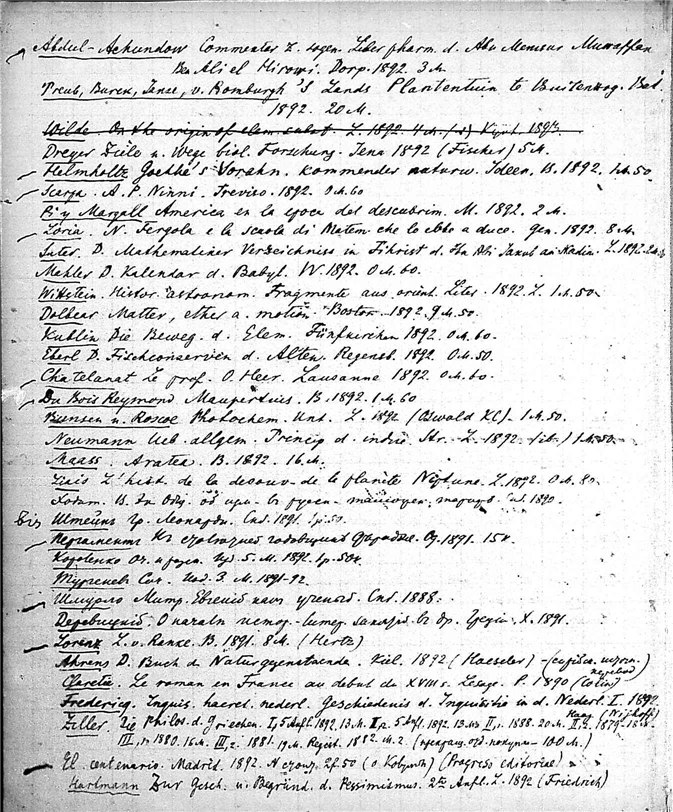 Abdul-Achundow Commentar z. sogen. Liber pharm. d. Abu Mansur Muwaffak
Ben Ali el Hirowi. Dorp. 1892. 3 M.
Treub, Burck, Janse, v. Romburgh 's Lands Plantentuin te Buitenzog. Bat.
1892. 20 M.
Wilde On the origin of elem. subst. L. 1892. 4 M.
Dreyer Ziele u. Wege biol. Forschung. Jena 1892 (Fischer) 5 M.
Helmholtz Goethe's Vorahn. kommender naturw. Ideen. B. 1892. 1 M. 50.
Scarpa. A. P. Ninni. Treviso. 1892. 0 M. 60
Pi y Margall America en la epoca del descubrim. M. 1892. 2 M.
Loria. N. Fergola e la scuola di Matem. che lo ebbe a duce. Gen. 1892. 8 M.
Suter. D. Mathematiker Verzeichniss in Fihrist d. Ibn Abi Jakub an Nadim. L. 1892.
Mahler D. Kalendar d. Babyl. W. 1892. 0 M. 60.
Wittstein. Histor. astronom. Fragmente aus orient. Liter. 1892. L. 1 M. 50.
Dolbear Matter, ether a. motion. Boston. 1892. 9 M. 50.
Kublin Die Beweg. d. Elem. Fünfkirchen 1892. 0 M. 60.
Eberl D. Fischconserven d. Alten. Regensb. 1892. 0 M. 50.
Chatelanat Le prof. O. Heer. Lausanne 1892. 0 M. 60.
Du Bois Reymond Maupertuis. B. 1892. 1 M. 60
Bunsen u. Roscoe Photochem. Unt. L. 1892 (Oswald XC). 1 M. 50.
Neumann Ueb. allgem. Princip d. Str. L. 1892 (ib.) 1 M. 50.
Maass. Aratea. B. 1892. 16 M.
L'hist. de la découv. de la planète Neptune. L. 1892. 0 M. 80.
В. 1890.
Bis Штейнъ Гр. Леопарди. Спб. 1891. 1 р. 50.
Пергаментъ Къ годовщинѣ Фарадея. Од. 1891. 15 к.
Короленко Оч. и разск. Изд. 5. М. 1892. 1 р. 50 к.
Тургеневъ Соч. Изд. 3. М. 1891-92.
Шмурло Митр. Евгеній какъ ученый. Спб. 1888.
Деревицкій. О началѣ истор.-литер. занятій въ др. Греціи. Х. 1891.
Lorenz L. v. Ranke. B. 1891. 8 M. (Hertz)
Ahrens D. Buch d. Kiel. 1892 (Haeseler)
Claretie. Le roman en France au debut du XVIII s. Lesage. P. 1890 (Colin)
Fredericq. Inquis. haeret. nederl. Geschiedenis d. Inquisitie in d. Nederl. I. 1892
Haag (Nijhoff)
Zeller. Die Philos. d. Griechen. I, 5 Aufl. 1892. 13 M.
III, 1. 1880. 16 M. III, 2. 1881. 19 M. Regist. 1882
El centenario. Madrid. 1892. (Progreso editorial)
Hartmann Zur Gesch. u. Begründ. d. Pessimismus. 2te Aufl. L. 1892 (Friedrich)